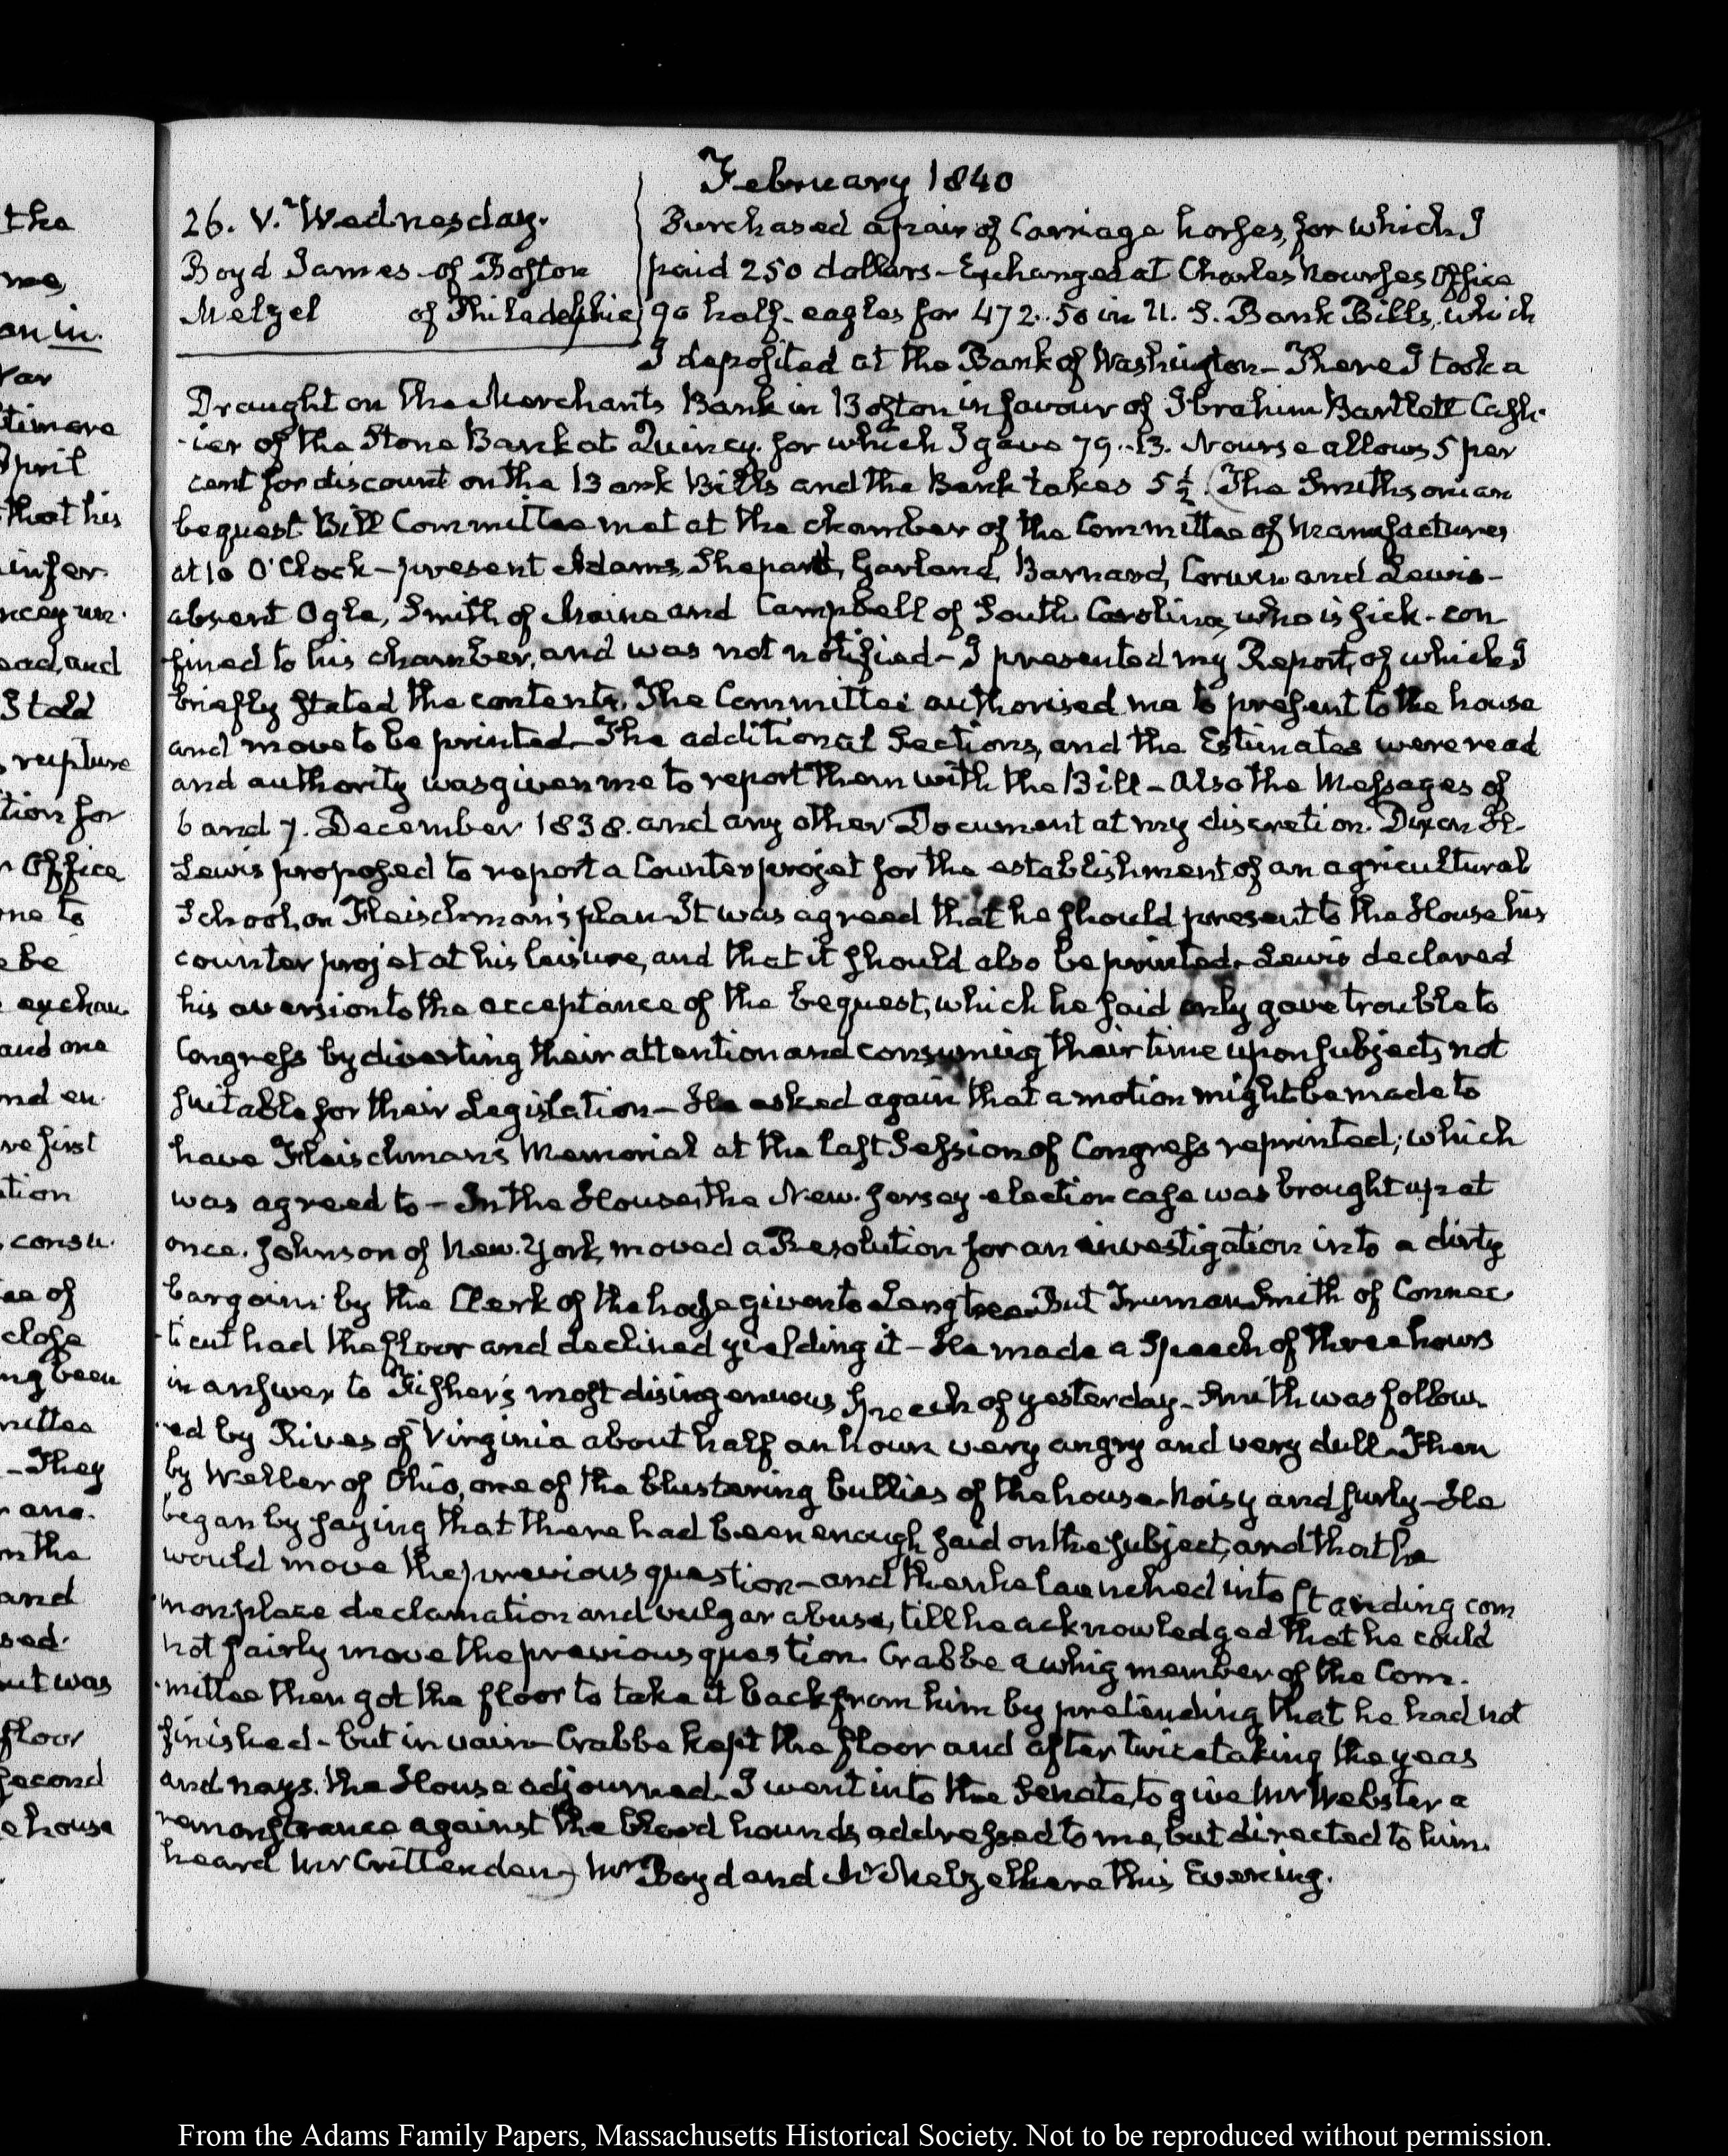 February 1840
26. V. Wednesday.
Boyd James - of Boston
Metzel of Philadelphia
Purchased a pair of Carriage horses, for which I
paid 250 dollars - Exchanged at Charles Nourse's Office
90 half-eagles for 472..50 in U. S. Bank Bills, which
I deposited at the Bank of Washington - There I took a
Draught on the Merchants Bank in Boston in favour of Ibrahim Bartlett Cash-
-ier of the Stone Bank at Quincy. for which I gave 79..13. Nourse allows 5 per
cent for discount on the Bank Bills and the Bank takes 5½. (The Smithsonian
bequest Bill Committee met at the chamber of the Committee of Manufactures
at 10 O'Clock - present Adams, Shepard, Garland, Barnard, Corwin and Lewis -
absent Ogle, Smith of Maine and Campbell of South Carolina, who is sick - con
fined to his chamber, and was not notified - I presented my Report, of which I
briefly stated the contents. The Committee authorised me to present to the house
and move to be printed - The additional Sections, and the Estimates were read
and authority was given me to report them with the Bill - also the Messages of
6 and 7. December 1838. and any other Document at my discretion. Dixon H.
Lewis proposed to report a Counter projet for the establishment of an agricultural
School, on Fleischman's plan - It was agreed that he should present to the House his
counter projet at his leisure, and that it should also be printed - Lewis declared
his aversion to the acceptance of the bequest, which he said only gave trouble to
Congress by diverting their attention and consuming their time upon subjects not
suitable for their Legislation - He asked again that a motion might be made to
have Fleischman's Memorial at the last Session of Congress reprinted; which
was agreed to - In the House, the New-Jersey election case was brought up at
once. Johnson of New-York, moved a Resolution for an investigation into a dirty
bargain by the Clerk of the house given to Langtree - But Truman Smith of Connec-
-ticut had the floor and declined yielding it - He made a Speech of three hours
in answer to Fisher's most disingenuous Speech of yesterday - Smith was follow-
-ed by Rives of Virginia about half an hour very angry and very dull - Then
by Weller of Ohio, one of the blustering bullies of the house - Noisy and surly - He
began by saying that there had been enough said on the subject, and that he
would move the previous question - and then he launched into standing com
-monplace declamation and vulgar abuse, till he acknowledged that he could
not fairly move the previous question. Crabbe a whig member of the Com-
-mittee then got the floor to take it back from him by pretending that he had not
finished - but in vain - Crabbe kept the floor and after twice taking the yeas
and nays. the House adjourned. I went into the Senate, to give Mr Webster a
remonstrance against the blood hounds, addressed to me, but directed to him.
heard Mr Crittenden) Mr Boyd and Mr Metzel here this Evening.
the
me,
an in.
Var
timore
April
that his
infer
ead, and
I told
rupture
tion for
Office
me to
be
exchan-
and one
nd en-
re first
ation
consu-
ee of
close
ng been
mittee
- They
r ano-
on the
and
sed.
ut was
floor
second
e house
From the Adams Family Papers, Massachusetts Historical Society. Not to be reproduced without permission.